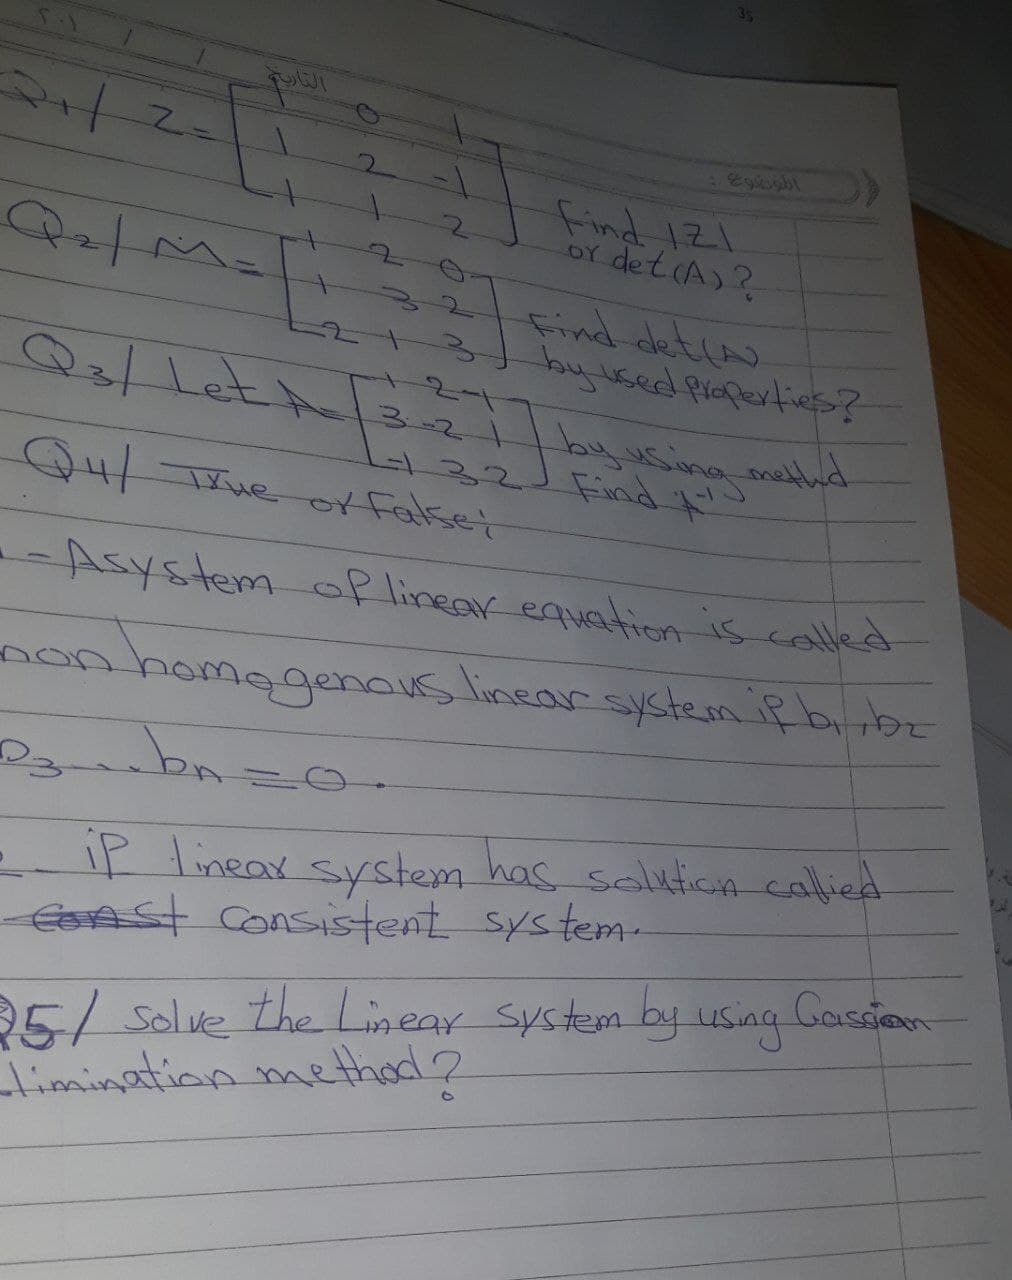 35
التاريخ / / ٢٠١
الموضوع :
Q1/ Z = [ 1 0 1
1 2 -1
1 1 2 ] find |Z|
or det(A)?
Q2/ M = [ 1 2 0
1 3 2
2 1 3 ] Find det(A)
by used properties?
Q3/ Let A = [ 1 2 -1
3 -2 1
-1 3 2 ] by using method
Find A⁻¹
Q4/ True or False;
- A system of linear equation is called
non homogenous linear system if b1, b2
b3 ... bn = 0.
if linear system has solution callied
const consistent system.
Q5/ Solve the Linear system by using Gassian
limination method?